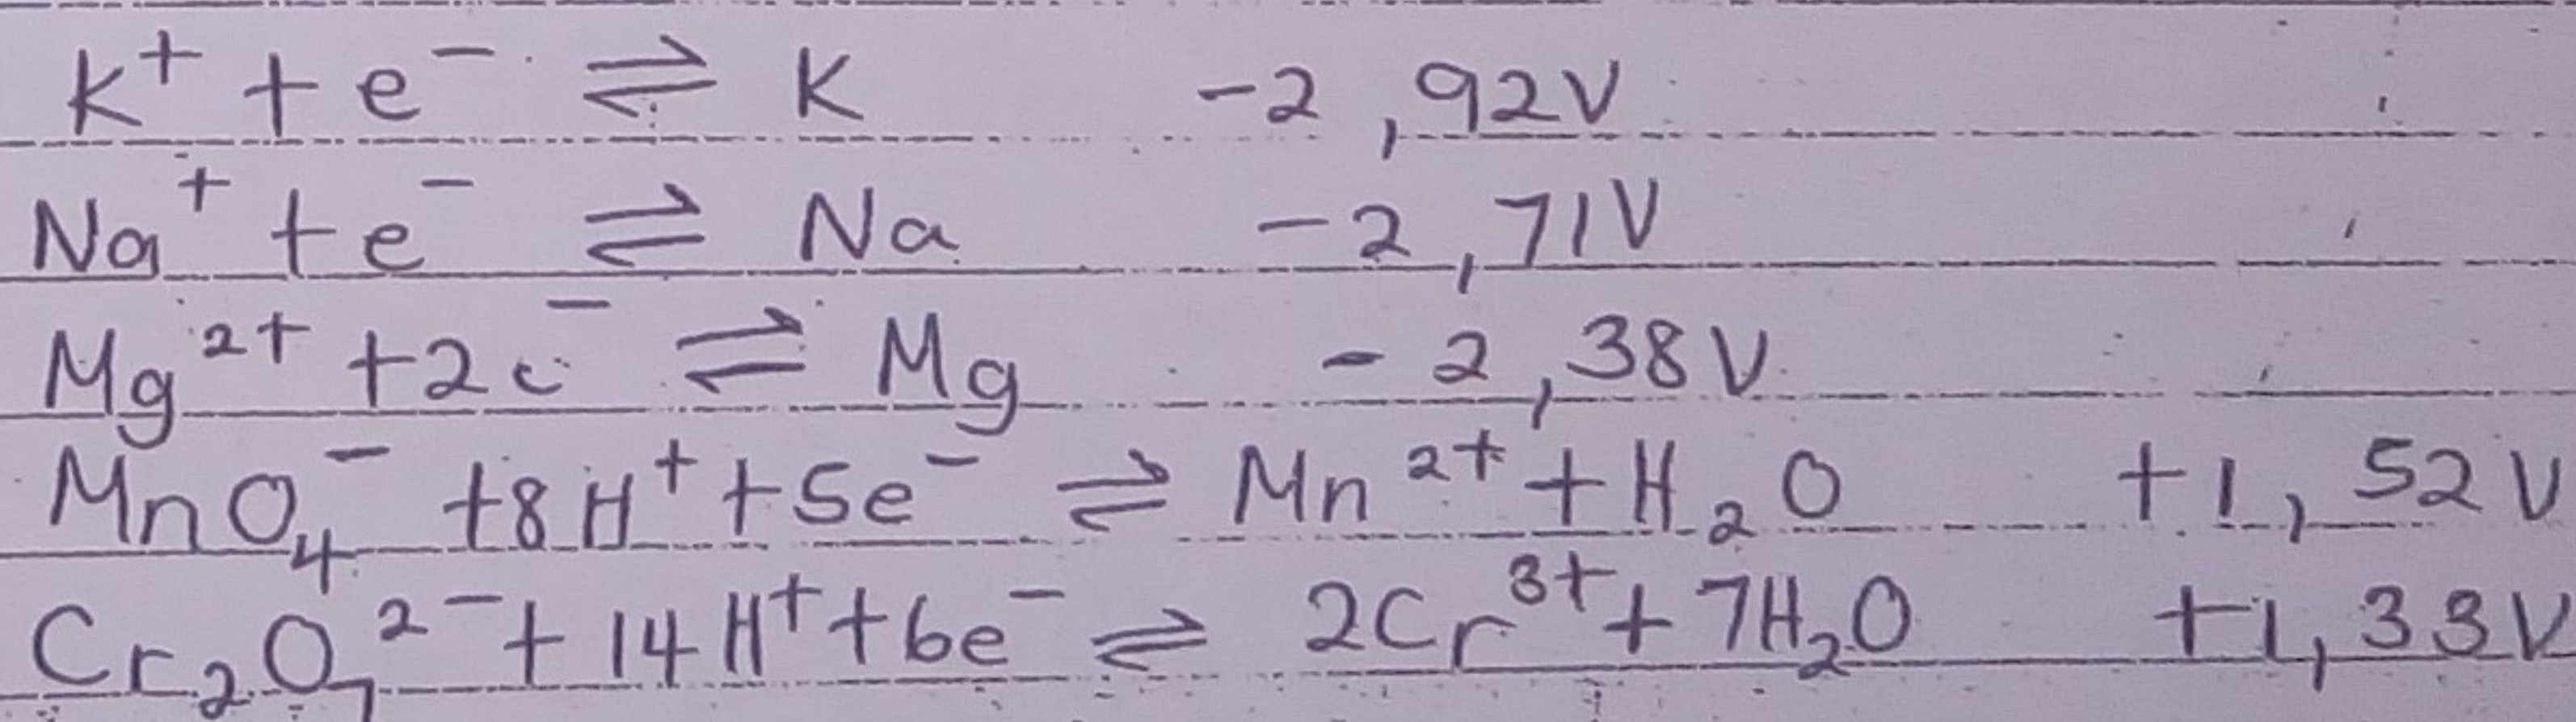 K⁺ + e⁻ ⇌ K -2,92V
Na⁺ + e⁻ ⇌ Na -2,71V
Mg²⁺ + 2e⁻ ⇌ Mg -2,38V
MnO₄⁻ + 8H⁺ + 5e⁻ ⇌ Mn²⁺ + H₂O +1,52V
Cr₂O₇²⁻ + 14H⁺ + 6e⁻ ⇌ 2Cr³⁺ + 7H₂O +1,33V